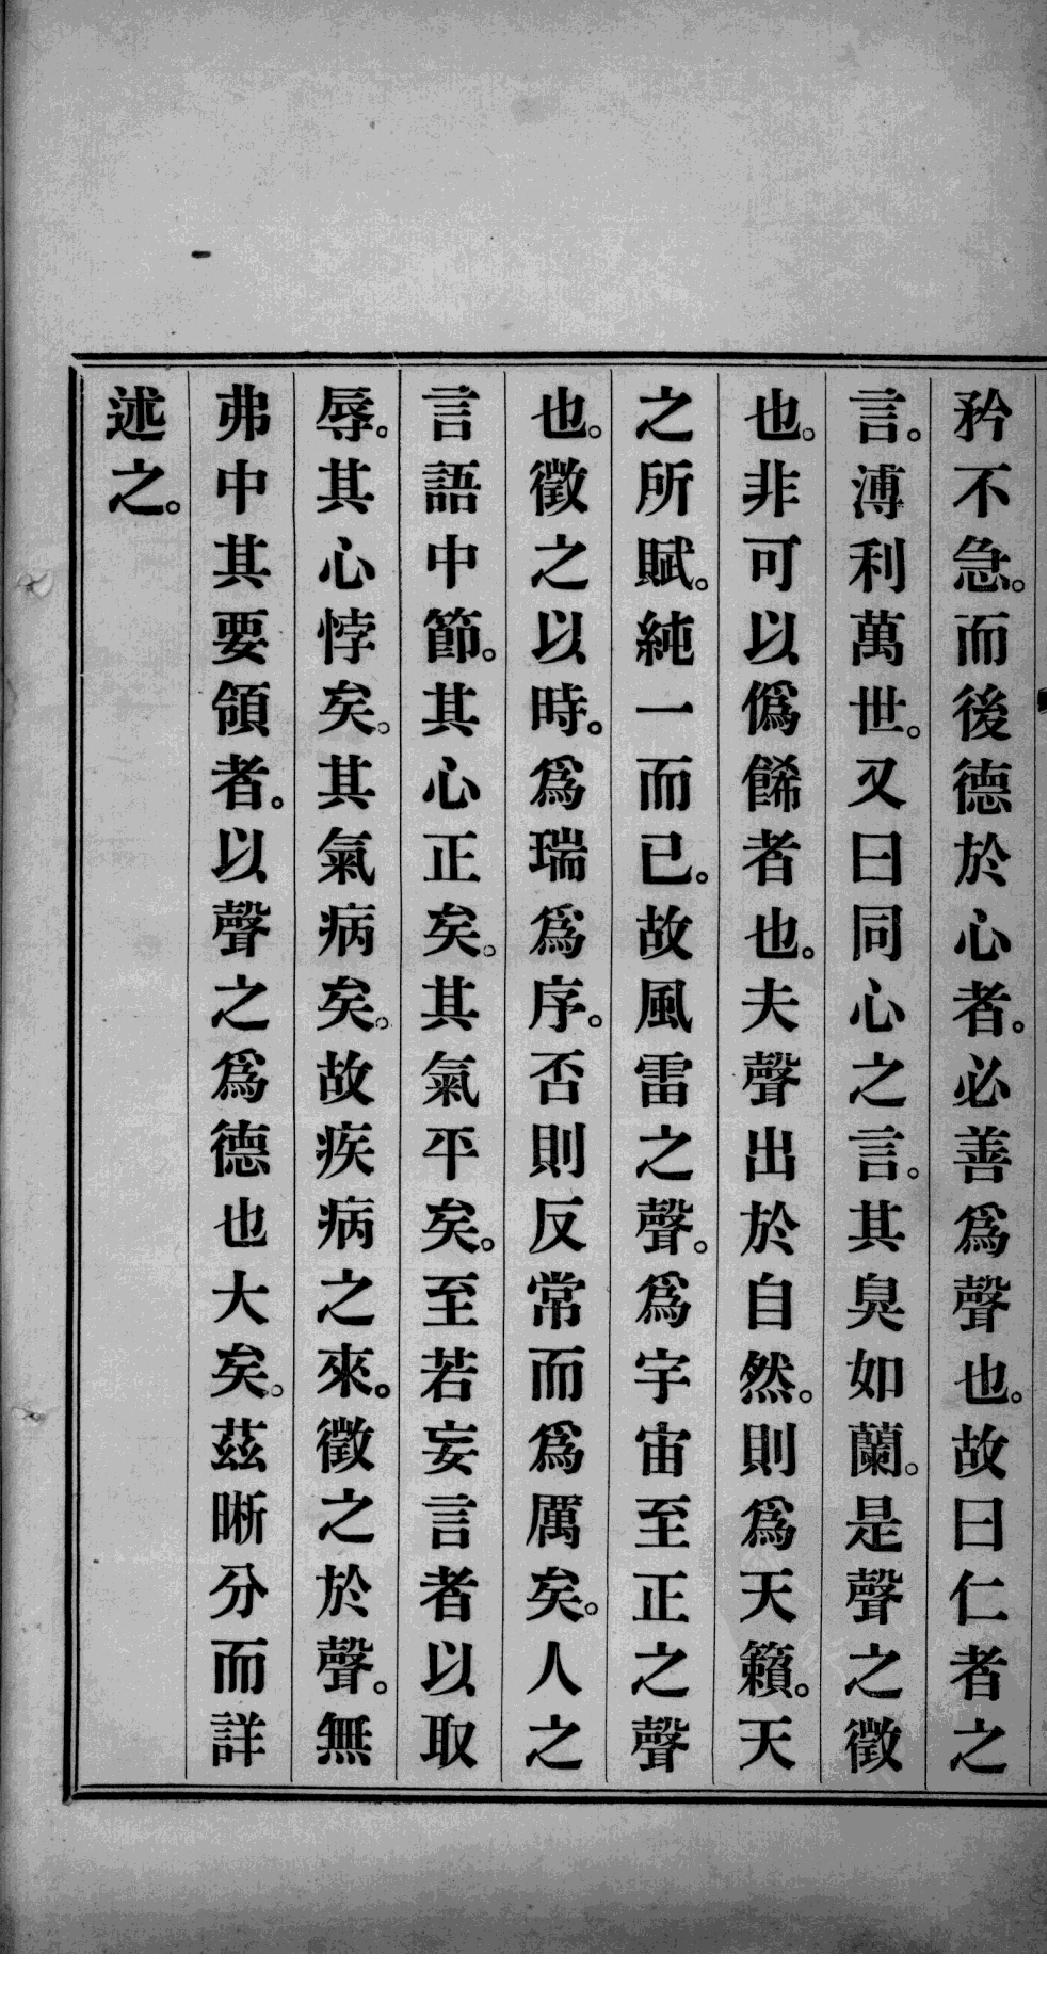 矜不急。而後德於心者。必善爲聲也。故曰仁者之
言。溥利萬世。又曰同心之言。其臭如蘭。是聲之徵
也。非可以僞餙者也。夫聲出於自然。則爲天籟。天
之所賦。純一而已。故風雷之聲。爲宇宙至正之聲
也。徵之以時。爲瑞爲序。否則反常而爲厲矣。人之
言語中節。其心正矣。其氣平矣。至若妄言者以取
辱。其心悖矣。其氣病矣。故疾病之來。徵之於聲。無
弗中其要領者。以聲之爲德也大矣。茲晰分而詳
述之。